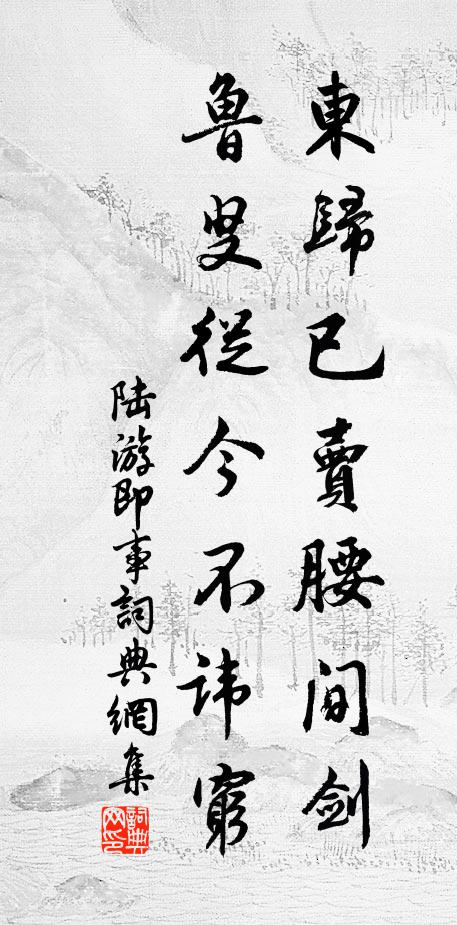 東歸已賣腰間劍
魯叟從今不讳窮
陆游即事詞典網集
詞典网印